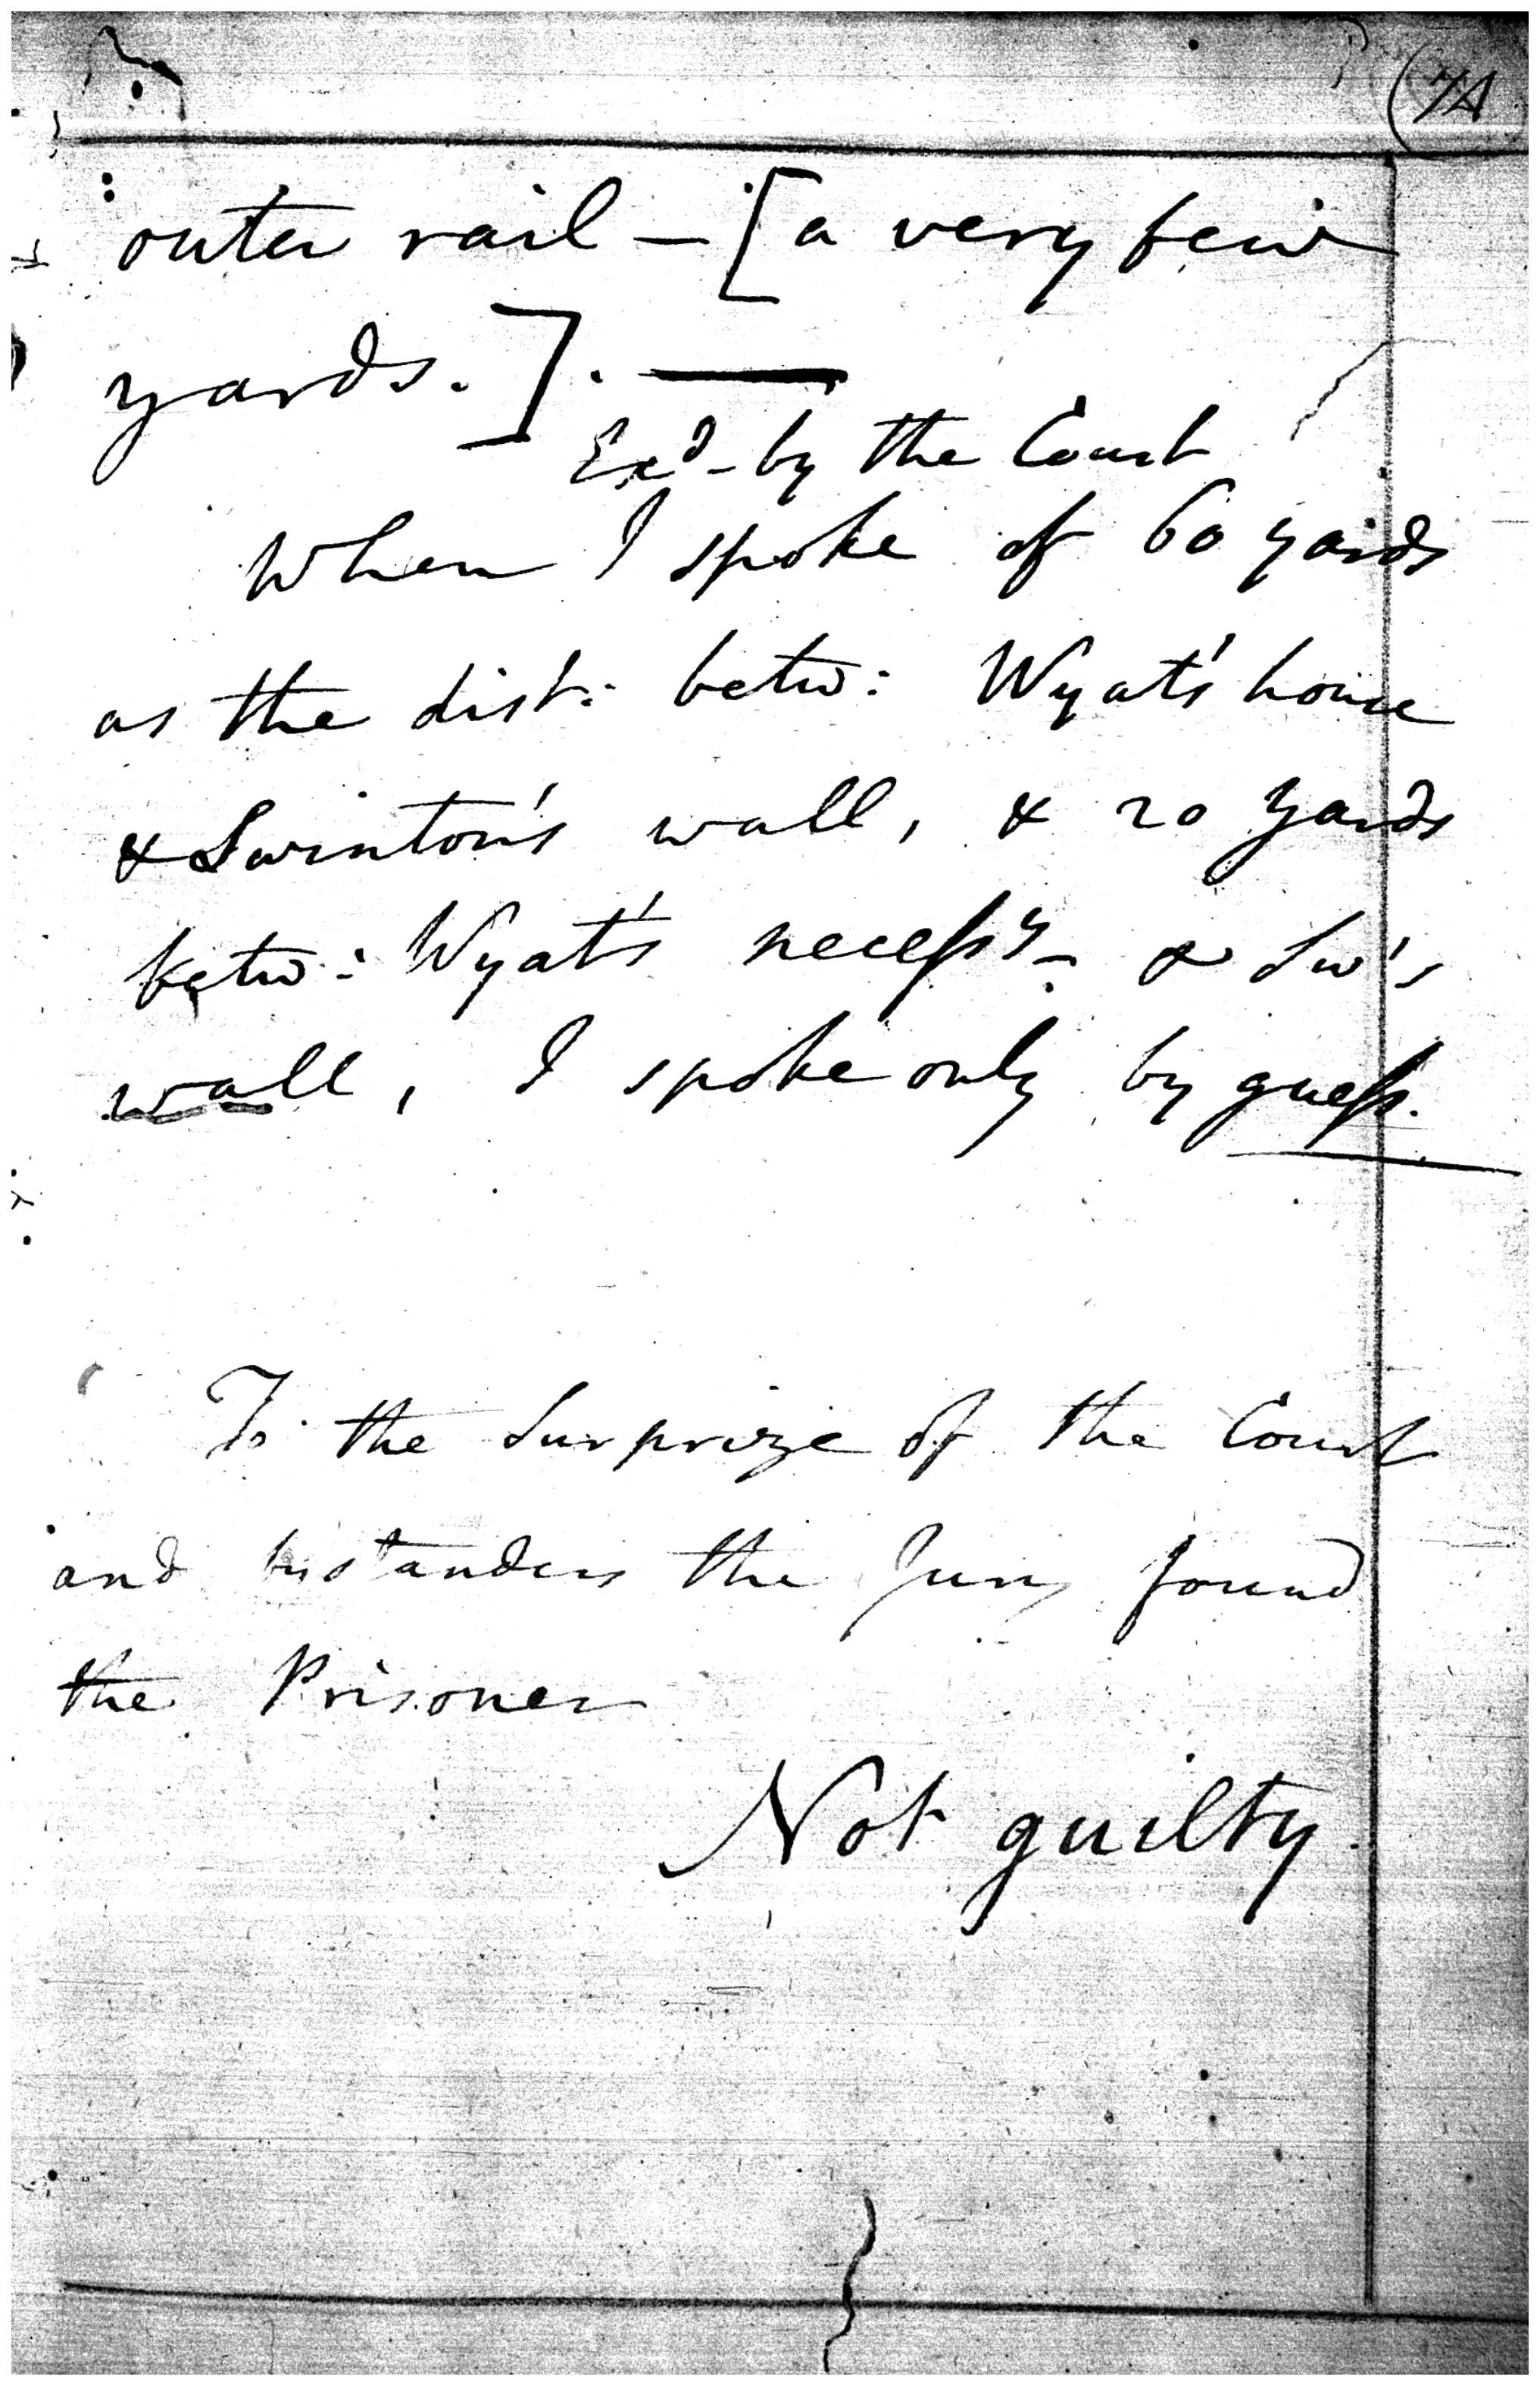 74
outer rail — [a very few
yards.]. —
Exd- by the Court
When I spoke of 60 yards
as the dist: betw: Wyat's house
& Swinton's wall, & 20 yards
betw: Wyat's necessy- & Sw's
wall, I spoke only by guess.
To the Surprize of the Court
and bystanders the Jury found
the Prisoner
Not guilty.